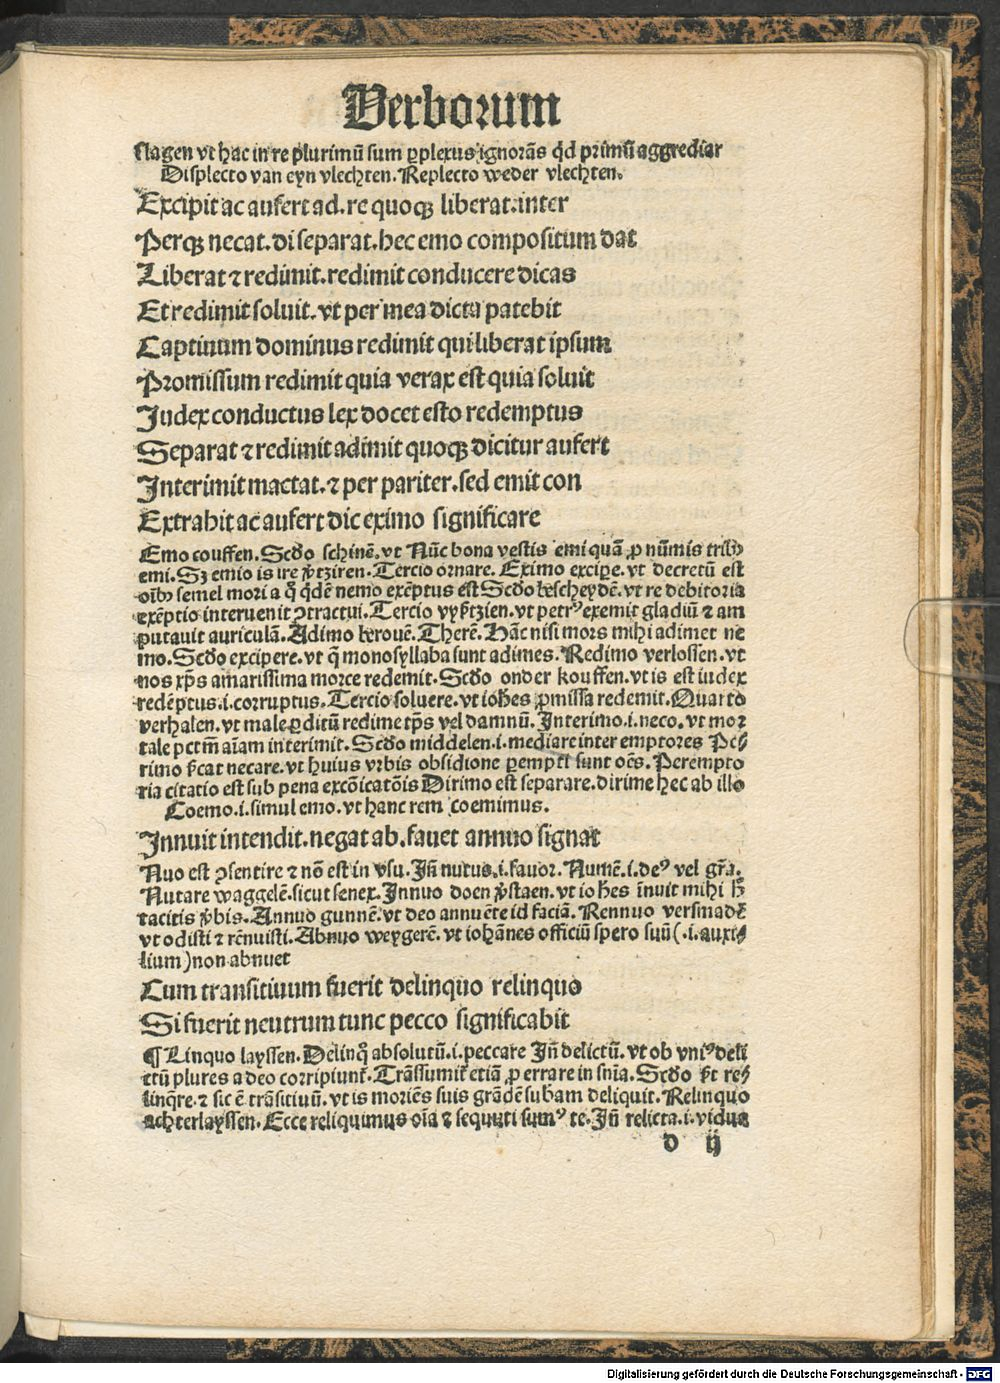 Verborum
slagen vt hac in re plurimū sum ꝑplexus ignorās qd primū aggrediar
Displecto van eyn vlechten. Replecto weder vlechten.
Excipit ac aufert ad. re quoqꝫ liberat. inter
Perqꝫ necat. di separat. hec emo compositum dat
Liberat ⁊ redimit. redimit conducere dicas
Et redimit soluit. vt per mea dicta patebit
Captiuum dominus redimit qui liberat ipsum
Promissum redimit quia verax est quia soluit
Iudex conductus lex docet esto redemptus
Separat ⁊ redimit adimit quoqꝫ dicitur aufert
Interimit mactat. ⁊ per pariter. sed emit con
Extrahit ac aufert dic eximo significare
Emo couffen. Scdo schinē. vt Nūc bona vestis emi quā ꝓ nūmis
emi. Sꝫ emio is ire. Tercio ornare. Eximo excipe. vt decretū est
oībꝫ semel mori a q̊ qdē nemo exēptus est Scdo bescheydē. vt re debitoria
exēptio interuenit ꝯtractui. Tercio. vt petrꝰ exemit gladiū ⁊ am
putauit auriculā. Adimo berouē. Therē. Hāc nisi mors mihi adimet ne
mo. Scdo excipere. vt q̄ monosyllaba sunt adimes. Redimo verlossen. vt
nos xp̄s amarissima morce redemit. Scdo onder kouffen. vt is est iudex
redēptus .i. corruptus. Tercio soluere. vt ioh̄es ꝓmissa redemit. Quarto
verhalen. vt male ꝑditū redime tp̄s vel damnū. Interimo .i. neco. vt mor
tale pctm̄ aīam interimit. Scdo middelen .i. mediare inter emptores Pe
rimo necare. vt huius vrbis obsidione ꝑempti sunt oēs. Perempto
ria citatio est sub pena excōicatōis Dirimo est separare. dirime hec ab illo
Coemo .i. simul emo. vt hanc rem coemimus.
Innuit intendit. negat ab. fauet annuo signat
Nuo est ꝯsentire ⁊ nō est in vsu. Iñ nutus .i. fauor. Numē .i. deꝰ vel grā.
Nutare waggelē. sicut senex. Innuo doen. vt ioh̄es īnuit mihi
tacitis. Annuo gunnē. vt deo annuēte id faciā. Rennuo versmadē
vt odisti ⁊ rēnuisti. Abnuo weygerē. vt iohānes officiū spero suū (.i. auxi
lium) non abnuet
Cum transitiuum fuerit delinquo relinquo
Si fuerit neutrum tunc pecco significabit
¶ Linquo layssen. Delinq̊ absolutū .i. peccare Iñ delictū. vt ob vniꝰ deli
ctū plures a deo corripiunt̄. Trāssumit̄ etiā ꝓ errare in snīa. Scdo re
linq̄re. ⁊ sic ē trāsitiuū. vt is moriēs suis grādē subam deliquit. Relinquo
achterlayssen. Ecce reliquimus oīa ⁊ sequuti sumꝰ te. Iñ relicta .i. vidua
d ij
Digitalisierung gefördert durch die Deutsche Forschungsgemeinschaft - DFG